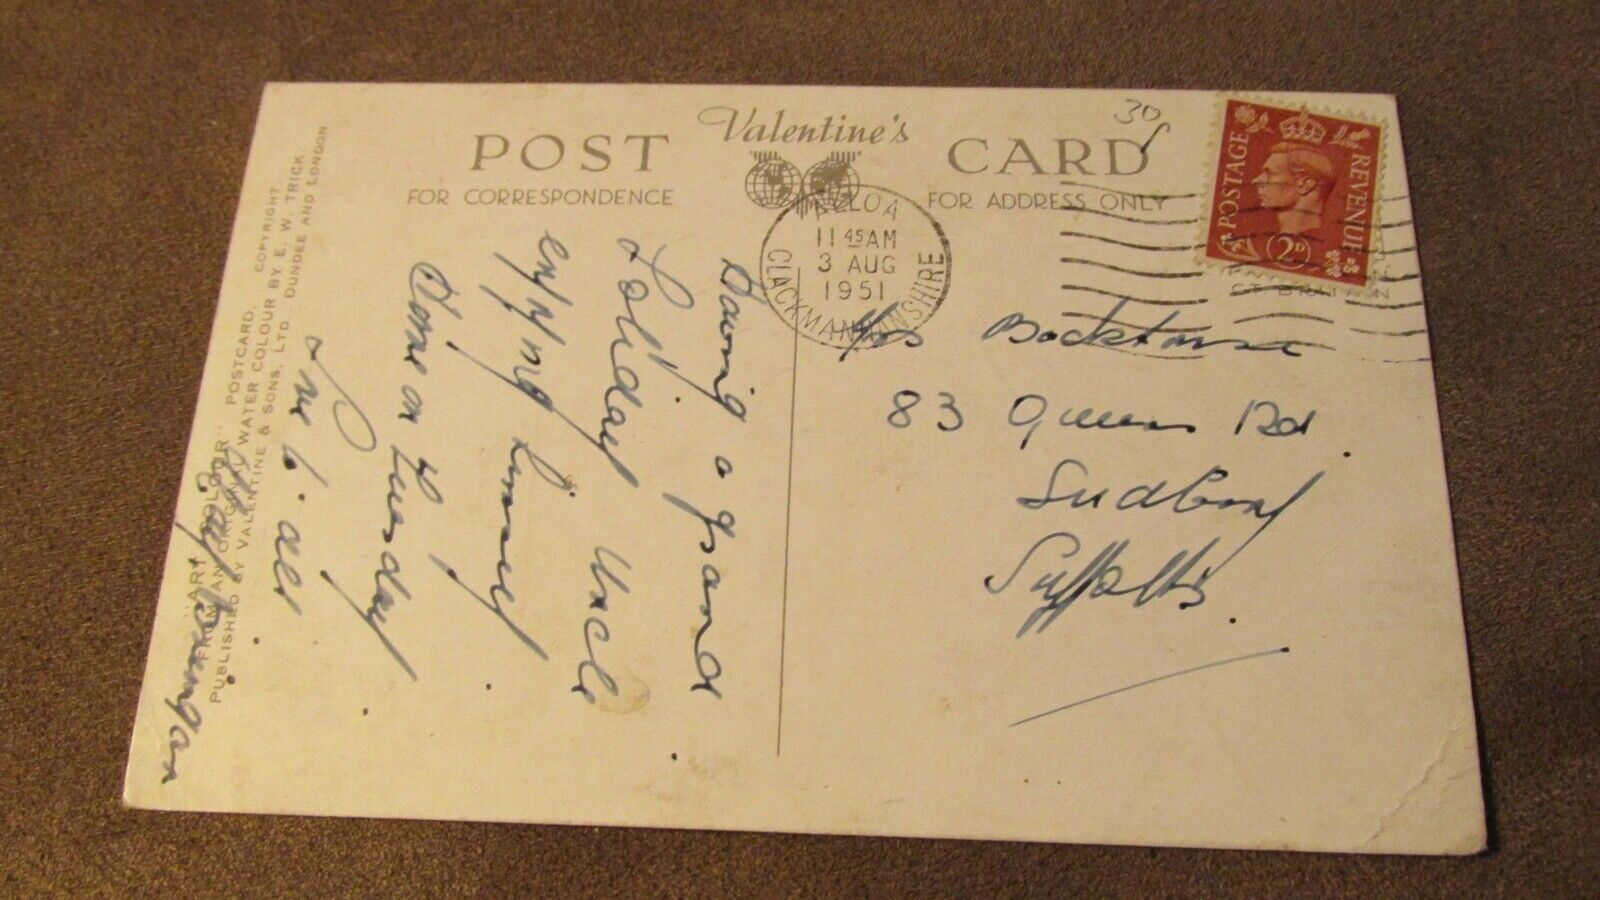 Valentine's
POST CARD
FOR CORRESPONDENCE
FOR ADDRESS ONLY
30
POSTAGE REVENUE
2D
ALLOA
11 45 AM
3 AUG
1951
CLACKMANNANSHIRE
GT. BRITAIN
Having a grand
Holiday Uncle
enjoying himself
Home on Tuesday
Love to all
Mrs
83 Queens Rd
Sudbury
Suffolk
"ART COLOUR" POSTCARD. COPYRIGHT
FROM AN ORIGINAL WATER COLOUR BY E. W. TRICK
PUBLISHED BY VALENTINE & SONS, LTD. DUNDEE AND LONDON